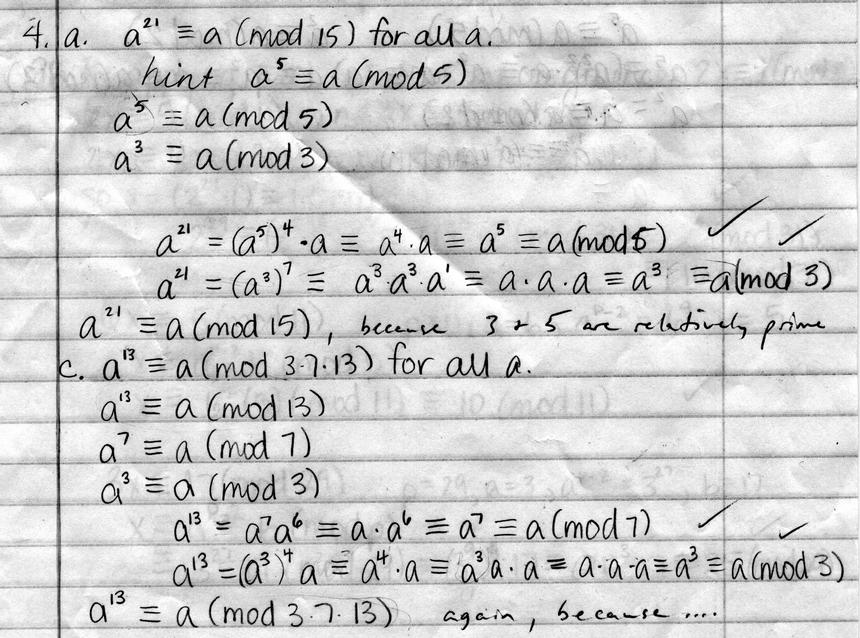 4. a. a²¹ ≡ a (mod 15) for all a.
hint a⁵ ≡ a (mod 5)
a⁵ ≡ a (mod 5)
a³ ≡ a (mod 3)
a²¹ = (a⁵)⁴·a ≡ a⁴·a ≡ a⁵ ≡ a (mod 5) ✓
a²¹ = (a³)⁷ ≡ a³·a³·a¹ ≡ a·a·a ≡ a³ ≡ a (mod 3) ✓
a²¹ ≡ a (mod 15), because 3 + 5 are relatively prime
c. a¹³ ≡ a (mod 3·7·13) for all a.
a¹³ ≡ a (mod 13)
a⁷ ≡ a (mod 7)
a³ ≡ a (mod 3)
a¹³ = a⁷a⁶ ≡ a·a⁶ ≡ a⁷ ≡ a (mod 7) ✓
a¹³ = (a³)⁴a ≡ a⁴·a ≡ a³a·a ≡ a·a·a ≡ a³ ≡ a (mod 3) ✓
a¹³ ≡ a (mod 3·7·13) again, because ....